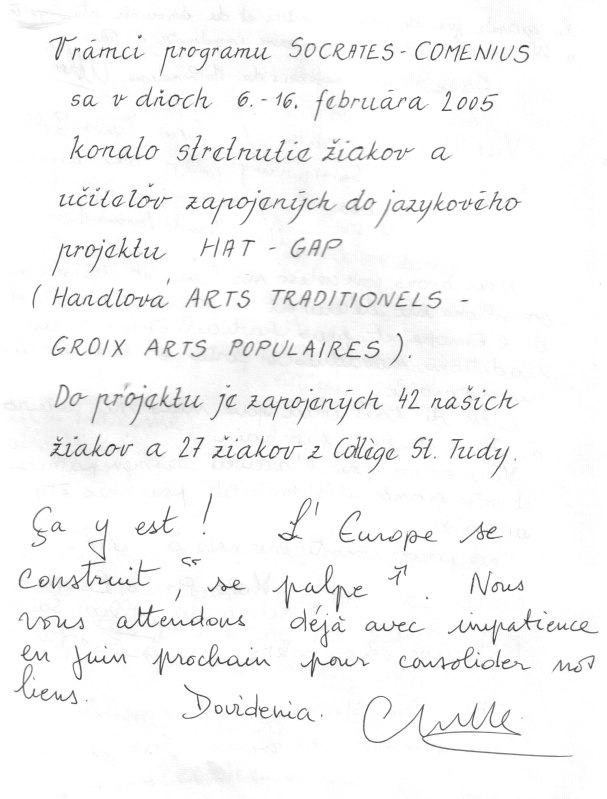 V rámci programu SOCRATES - COMENIUS
sa v dňoch 6. - 16. februára 2005
konalo stretnutie žiakov a
učitelov zapojených do jazykového
projektu HAT - GAP
(Handlová ARTS TRADITIONELS -
GROIX ARTS POPULAIRES).
Do projektu je zapojených 42 našich
žiakov a 27 žiakov z Collège St. Tudy.
Ça y est ! L'Europe se
construit, "se palpe". Nous
vous attendons déjà avec impatience
en juin prochain pour consolider nos
liens. Dovidenia.